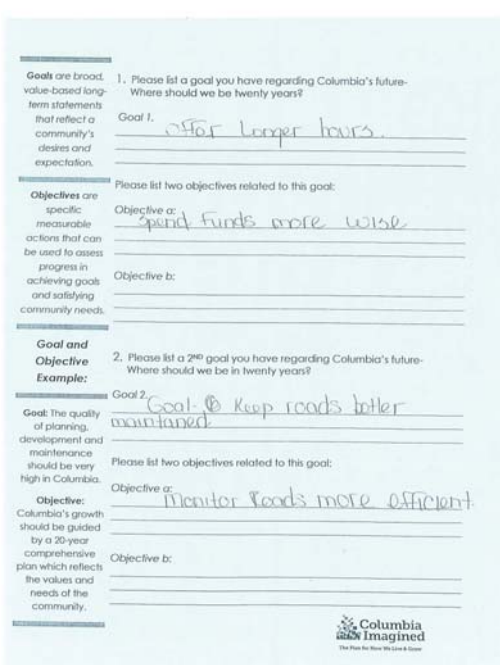 Goals are broad,
value-based long-
term statements
that reflect a
community's
desires and
expectation.
Objectives are
specific
measurable
actions that can
be used to assess
progress in
achieving goals
and satisfying
community needs.
Goal and
Objective
Example:
Goal: The quality
of planning,
development and
maintenance
should be very
high in Columbia.
Objective:
Columbia's growth
should be guided
by a 20-year
comprehensive
plan which reflects
the values and
needs of the
community.
1. Please list a goal you have regarding Columbia's future-
Where should we be twenty years?
Goal 1.
offer Longer hours.
Please list two objectives related to this goal:
Objective a:
Spend funds more wise
Objective b:
2. Please list a 2ND goal you have regarding Columbia's future-
Where should we be in twenty years?
Goal 2.
Goal- Keep roads better
maintaned
Please list two objectives related to this goal:
Objective a:
Monitor Roads more efficient
Objective b:
Columbia
Imagined
The Plan for How We Live & Grow